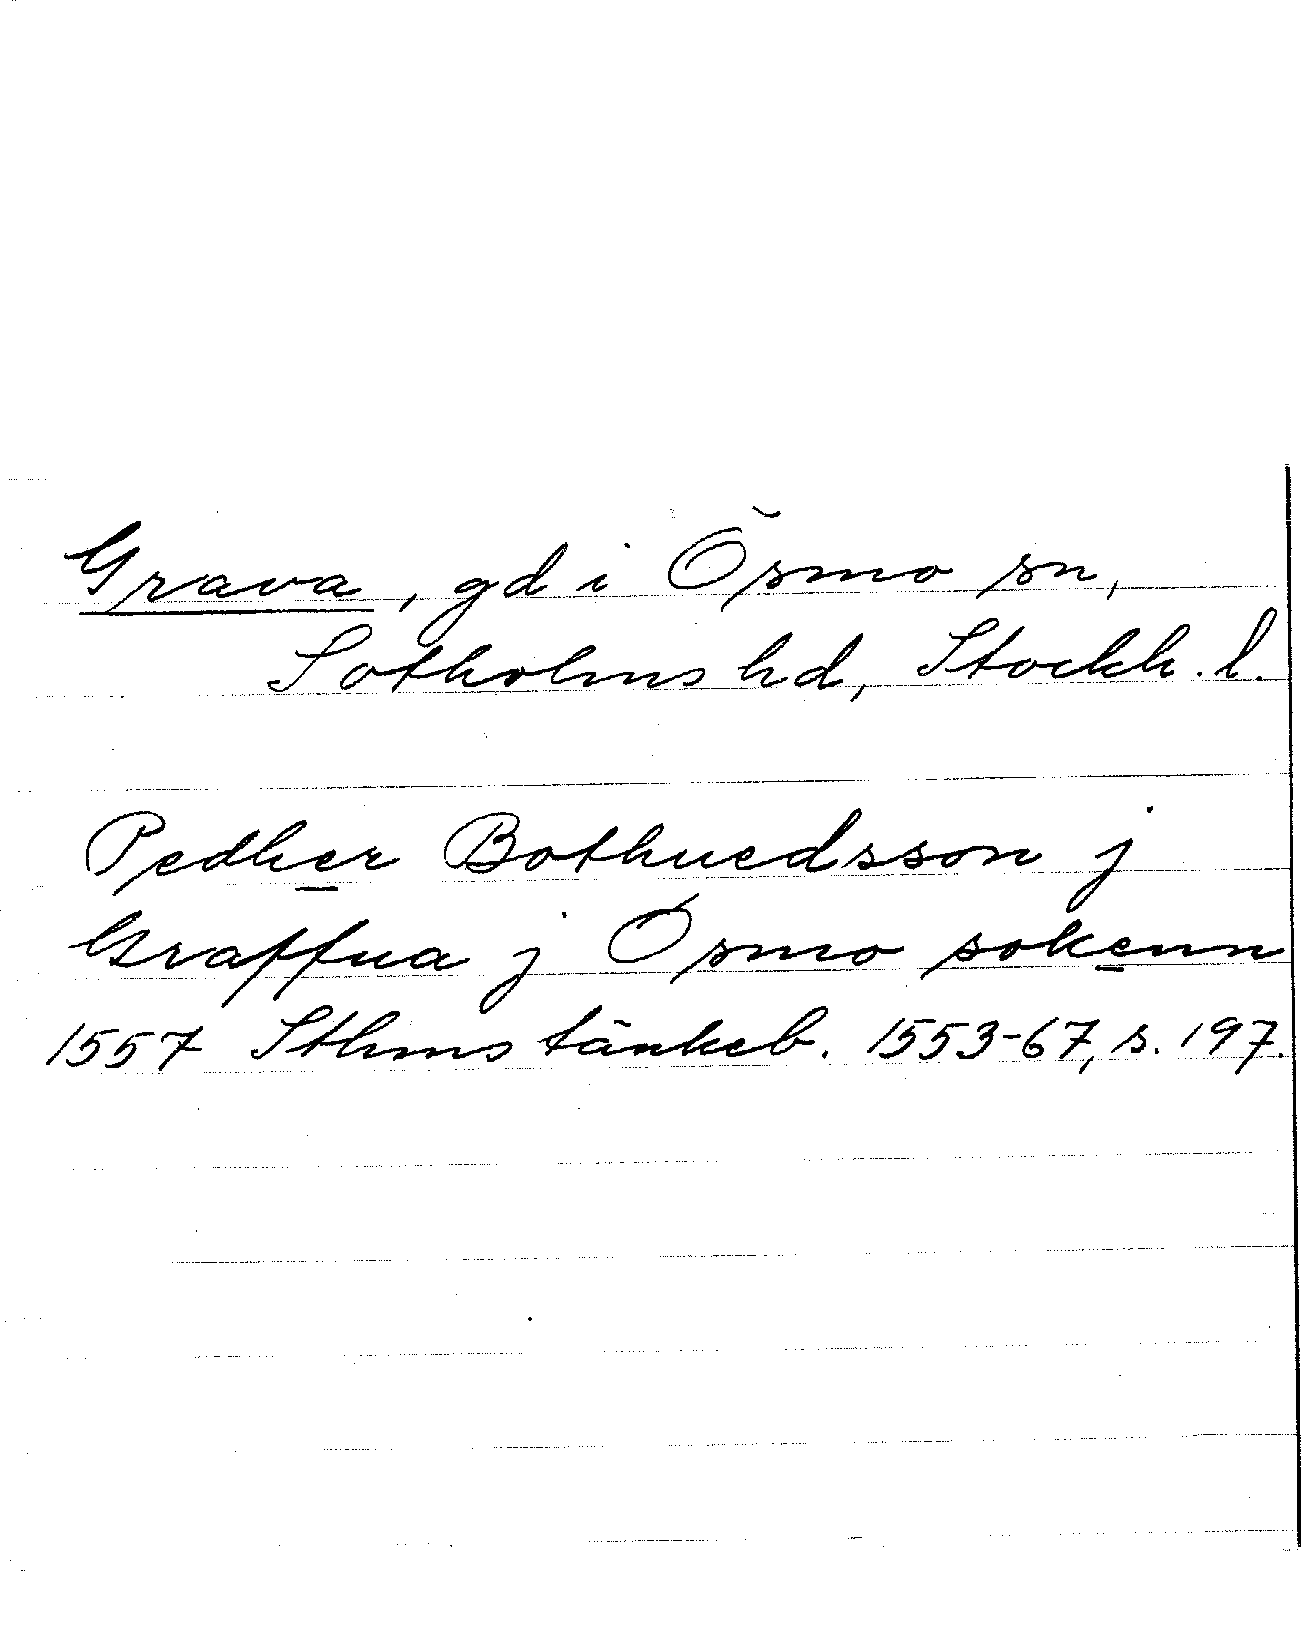 Grava, gd i Ösmo sn,
Sotholms hd, Stockh. l.
Pedher Bothuedsson j
Graffua j Ósmo sokenn
1557 Sthms tänkeb. 1553-67, s. 197.